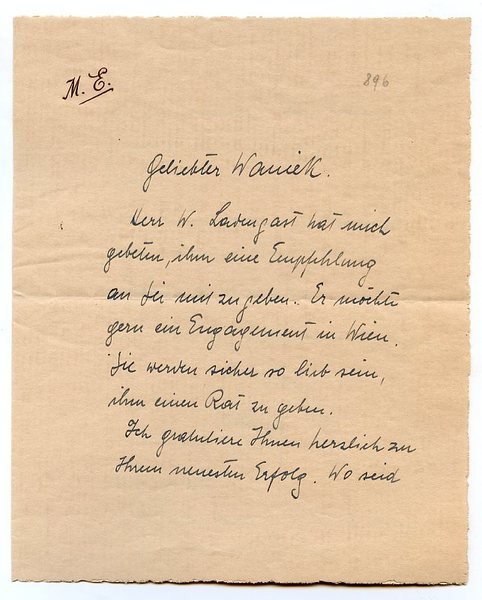 M. E.
896
Geliebter Waniek.
Herr W. Ladengast hat mich
gebeten, ihm eine Empfehlung
an Sie mitzugeben. Er möchte
gern ein Engagement in Wien.
Sie werden sicher so lieb sein,
ihm einen Rat zu geben.
Ich gratuliere Ihnen herzlich zu
Ihrem neuesten Erfolg. Wo seid